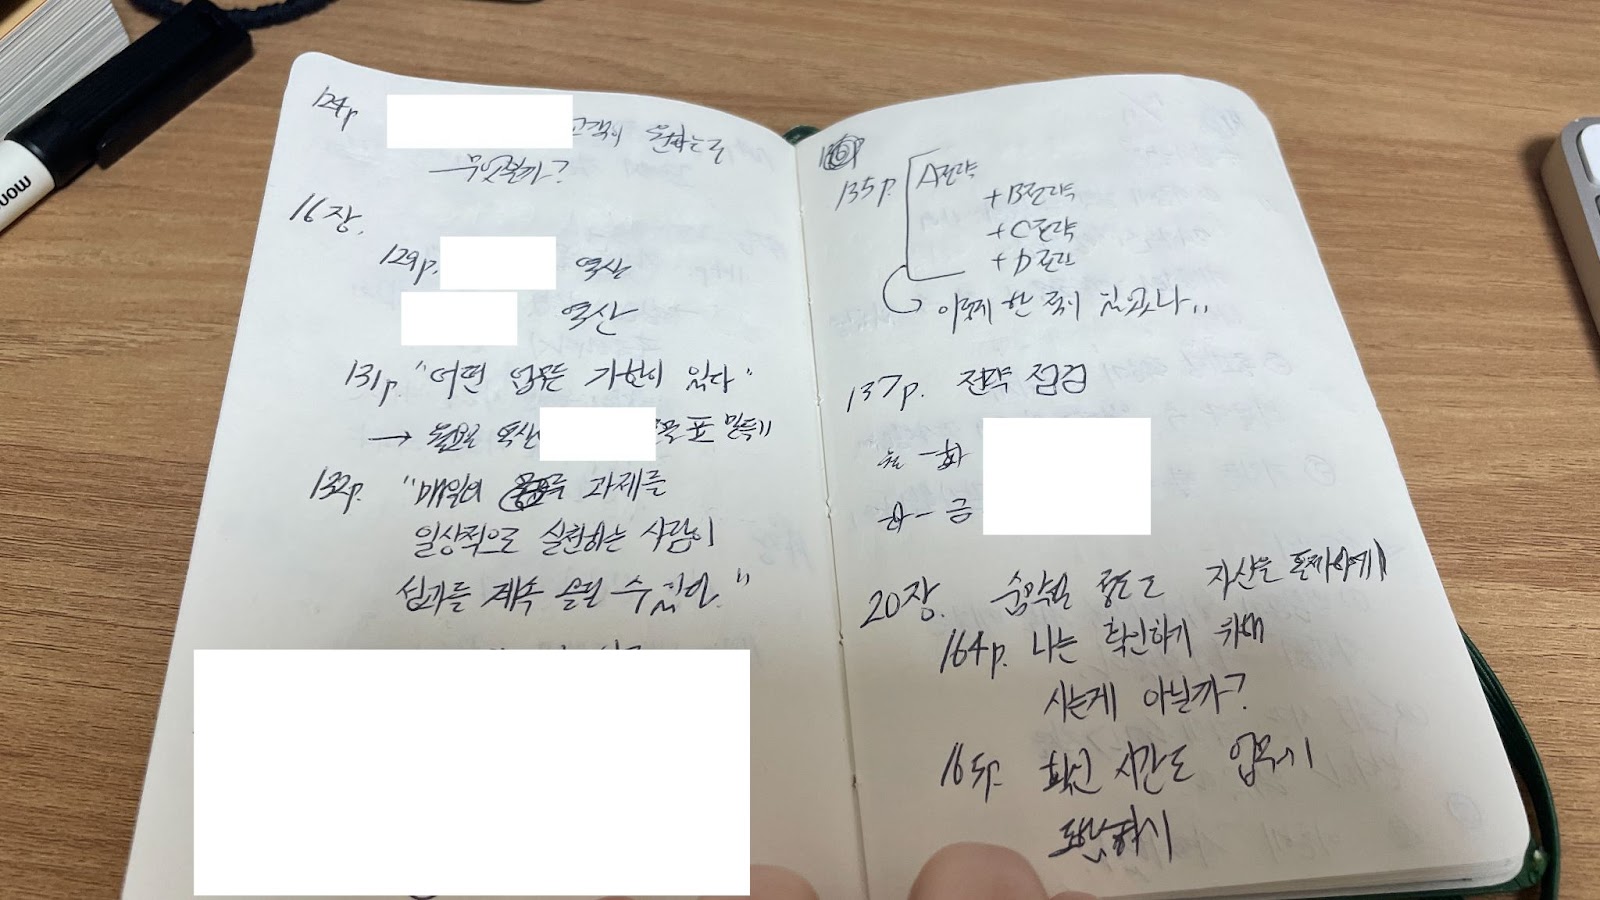 124p 고객이 원하는건
무엇일까?
16장.
129p. 역산
역산
131p. "어떤 업무든 기한이 있다"
→ 월요일 역산 표 만들기
132p. "매일의 과제를
일상적으로 실천하는 사람이
성과를 계속 올릴 수 있다."
135p. A전략
+ B전략
+ C전략
+ D전략
이렇게 한 적이 있었나..
137p. 전략 점검
월 - 화
화 - 금
20장. 숨막힐 정도로 자산을
164p. 나는 확인하기 위해
사는게 아닐까?
165p. 확인 시간도 업무에
mon